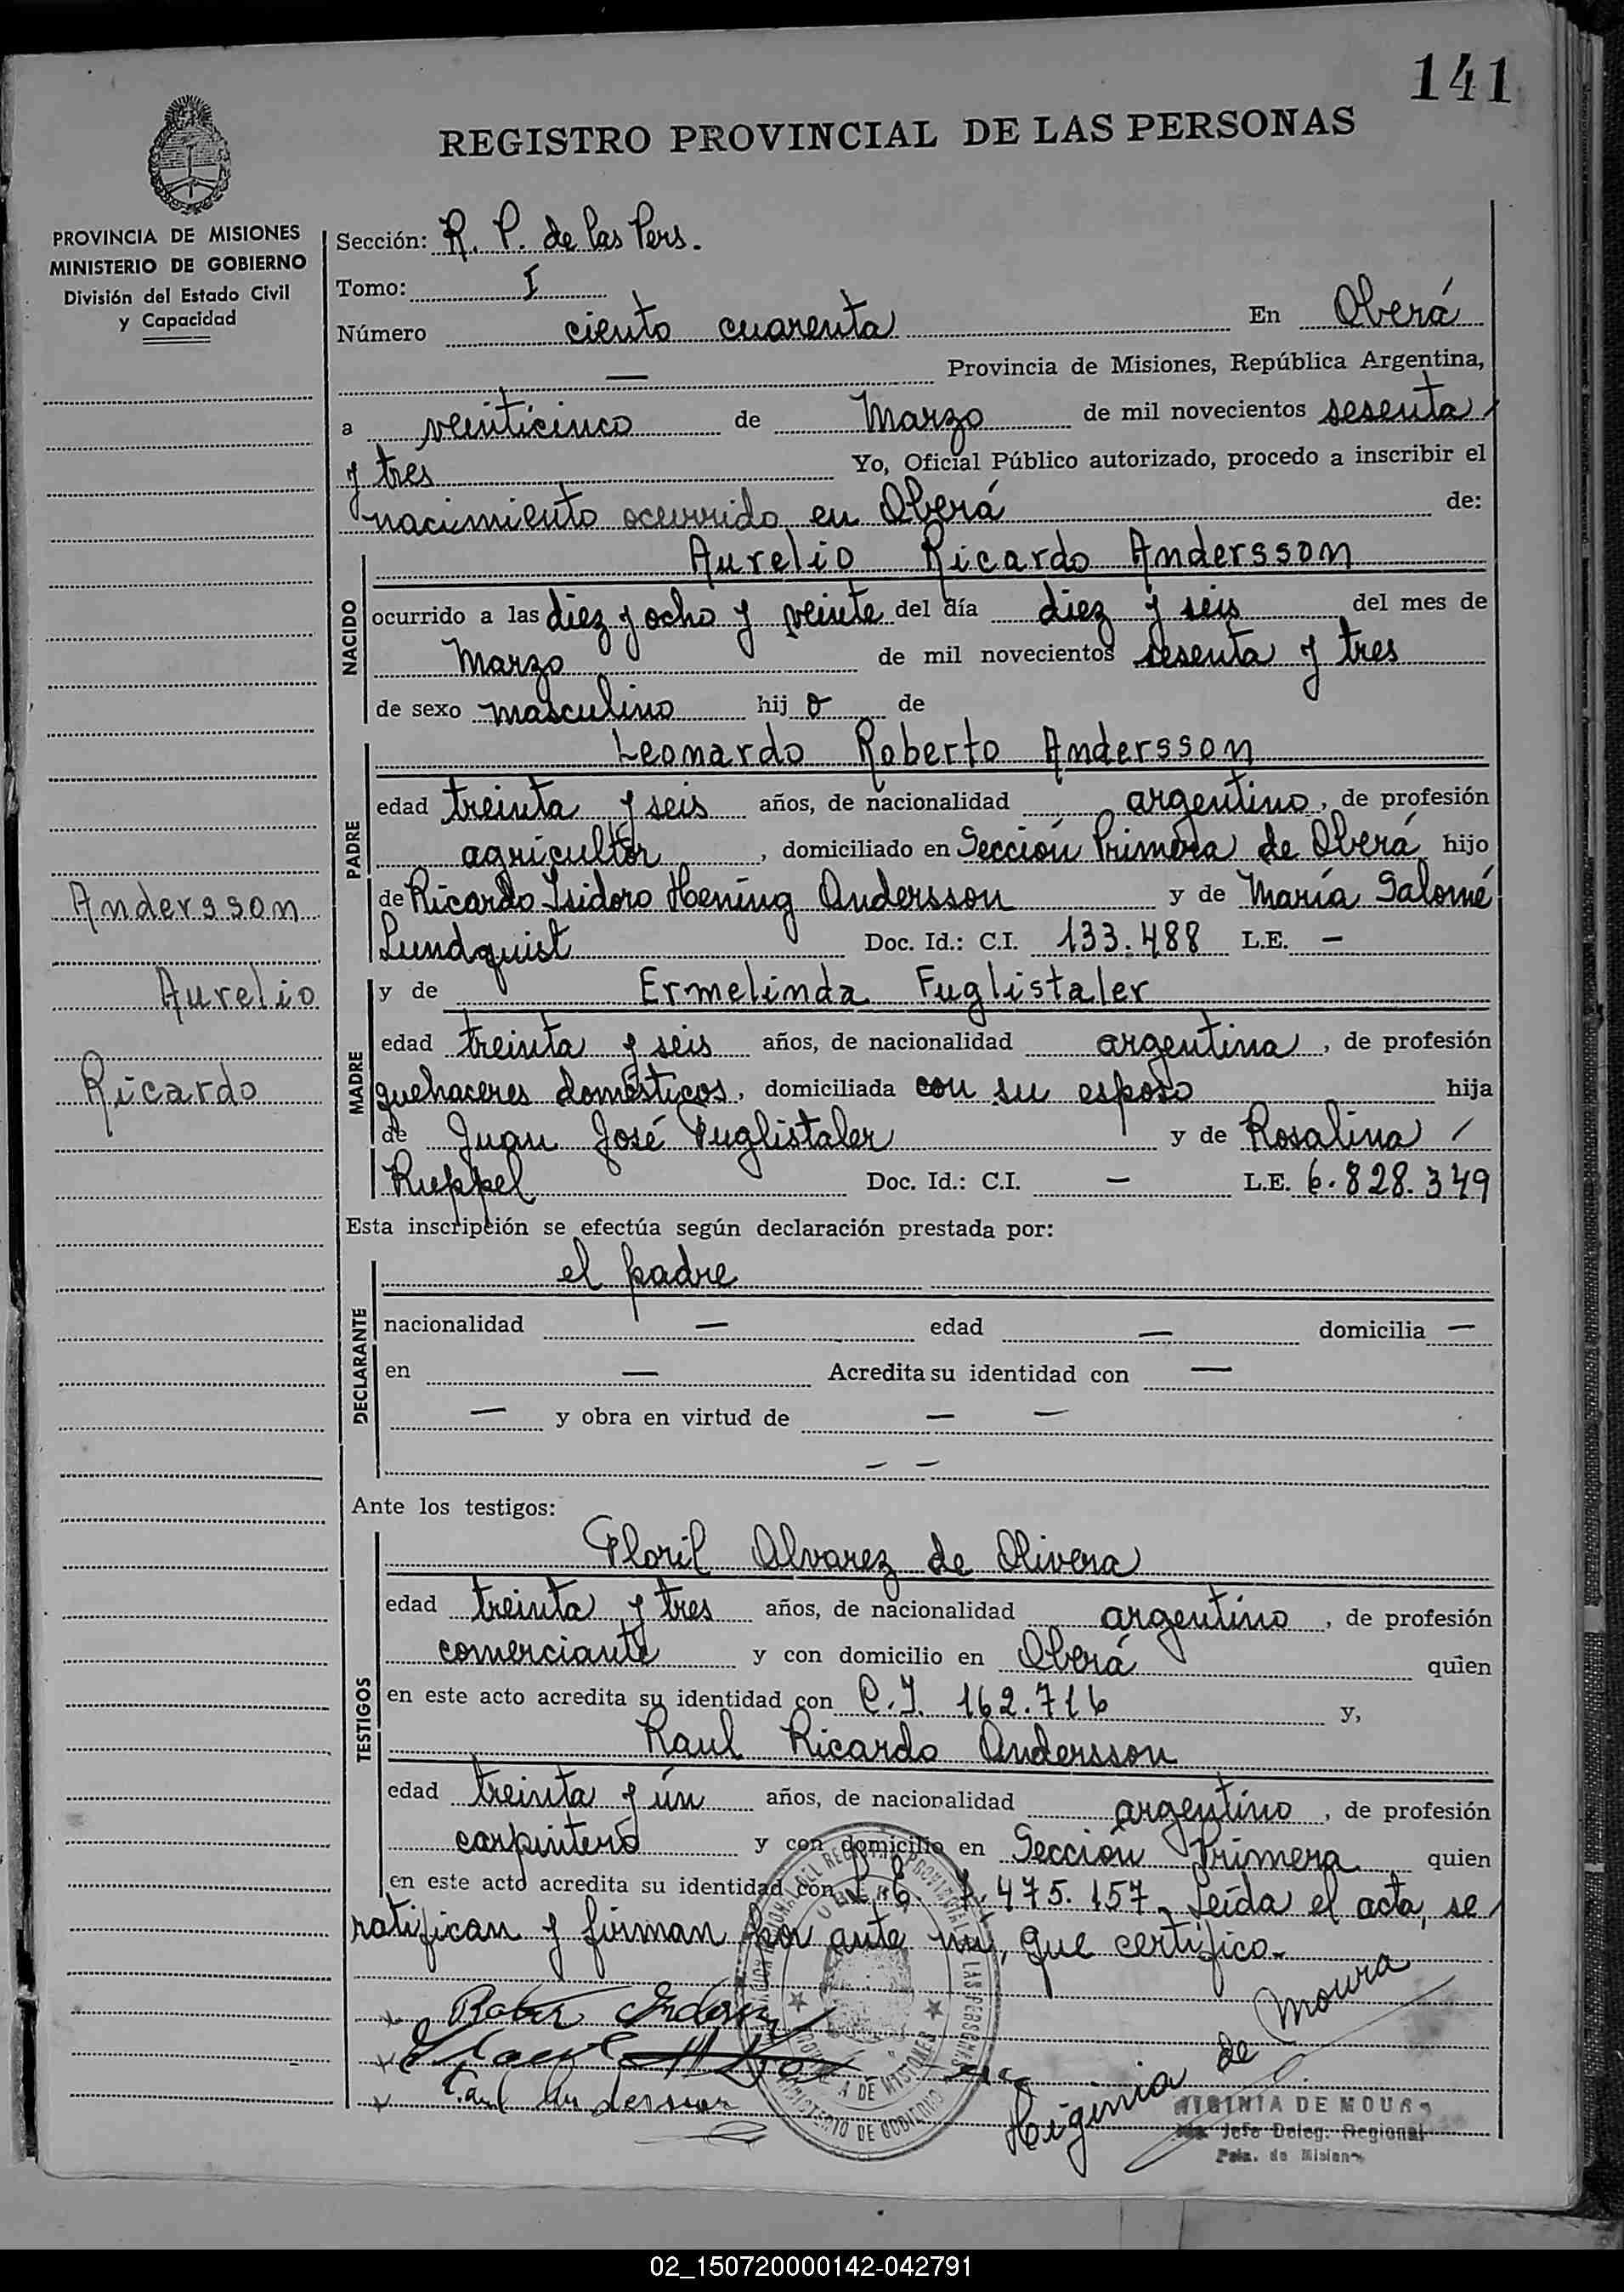 141
REGISTRO PROVINCIAL DE LAS PERSONAS
PROVINCIA DE MISIONES
MINISTERIO DE GOBIERNO
División del Estado Civil
y Capacidad
Sección: R. P. de las Pers.
Tomo: I
Número ciento cuarenta En Oberá
— Provincia de Misiones, República Argentina,
a veinticinco de Marzo de mil novecientos sesenta
y tres Yo, Oficial Público autorizado, procedo a inscribir el
nacimiento ocurrido en Oberá de:
NACIDO
Aurelio Ricardo Andersson
ocurrido a las diez y ocho y veinte del día diez y seis del mes de
Marzo de mil novecientos sesenta y tres
de sexo masculino hij o de
PADRE
Leonardo Roberto Andersson
edad treinta y seis años, de nacionalidad argentino, de profesión
agricultor, domiciliado en Sección Primera de Oberá hijo
de Ricardo Isidoro Hening Andersson y de María Salomé
Lundquist Doc. Id.: C.I. 133.488 L.E. —
MADRE
y de Ermelinda Fuglistaler
edad treinta y seis años, de nacionalidad argentina, de profesión
quehaceres domésticos, domiciliada con su esposo hija
de Juan José Fuglistaler y de Rosalina /
Ruppel Doc. Id.: C.I. — L.E. 6.828.349
Andersson
Aurelio
Ricardo
Esta inscripción se efectúa según declaración prestada por:
DECLARANTE
el padre
nacionalidad — edad — domicilia —
en — Acredita su identidad con —
— y obra en virtud de — —
— —
Ante los testigos:
TESTIGOS
Floril Alvarez de Olivera
edad treinta y tres años, de nacionalidad argentino, de profesión
comerciante y con domicilio en Oberá quien
en este acto acredita su identidad con C.I. 162.716 y,
Raul Ricardo Andersson
edad treinta y ún años, de nacionalidad argentino, de profesión
carpintero y con domicilio en Sección Primera quien
en este acto acredita su identidad con L.E. 7.475.157. Leída el acta, se
ratifican y firman por ante mí, que certifico.
Raul Andersson
Higinia de Moura
HIGINIA DE MOURA
Jefe Deleg. Regional
Pcia. de Misiones
MINISTERIO DE GOBIERNO
02_150720000142-042791